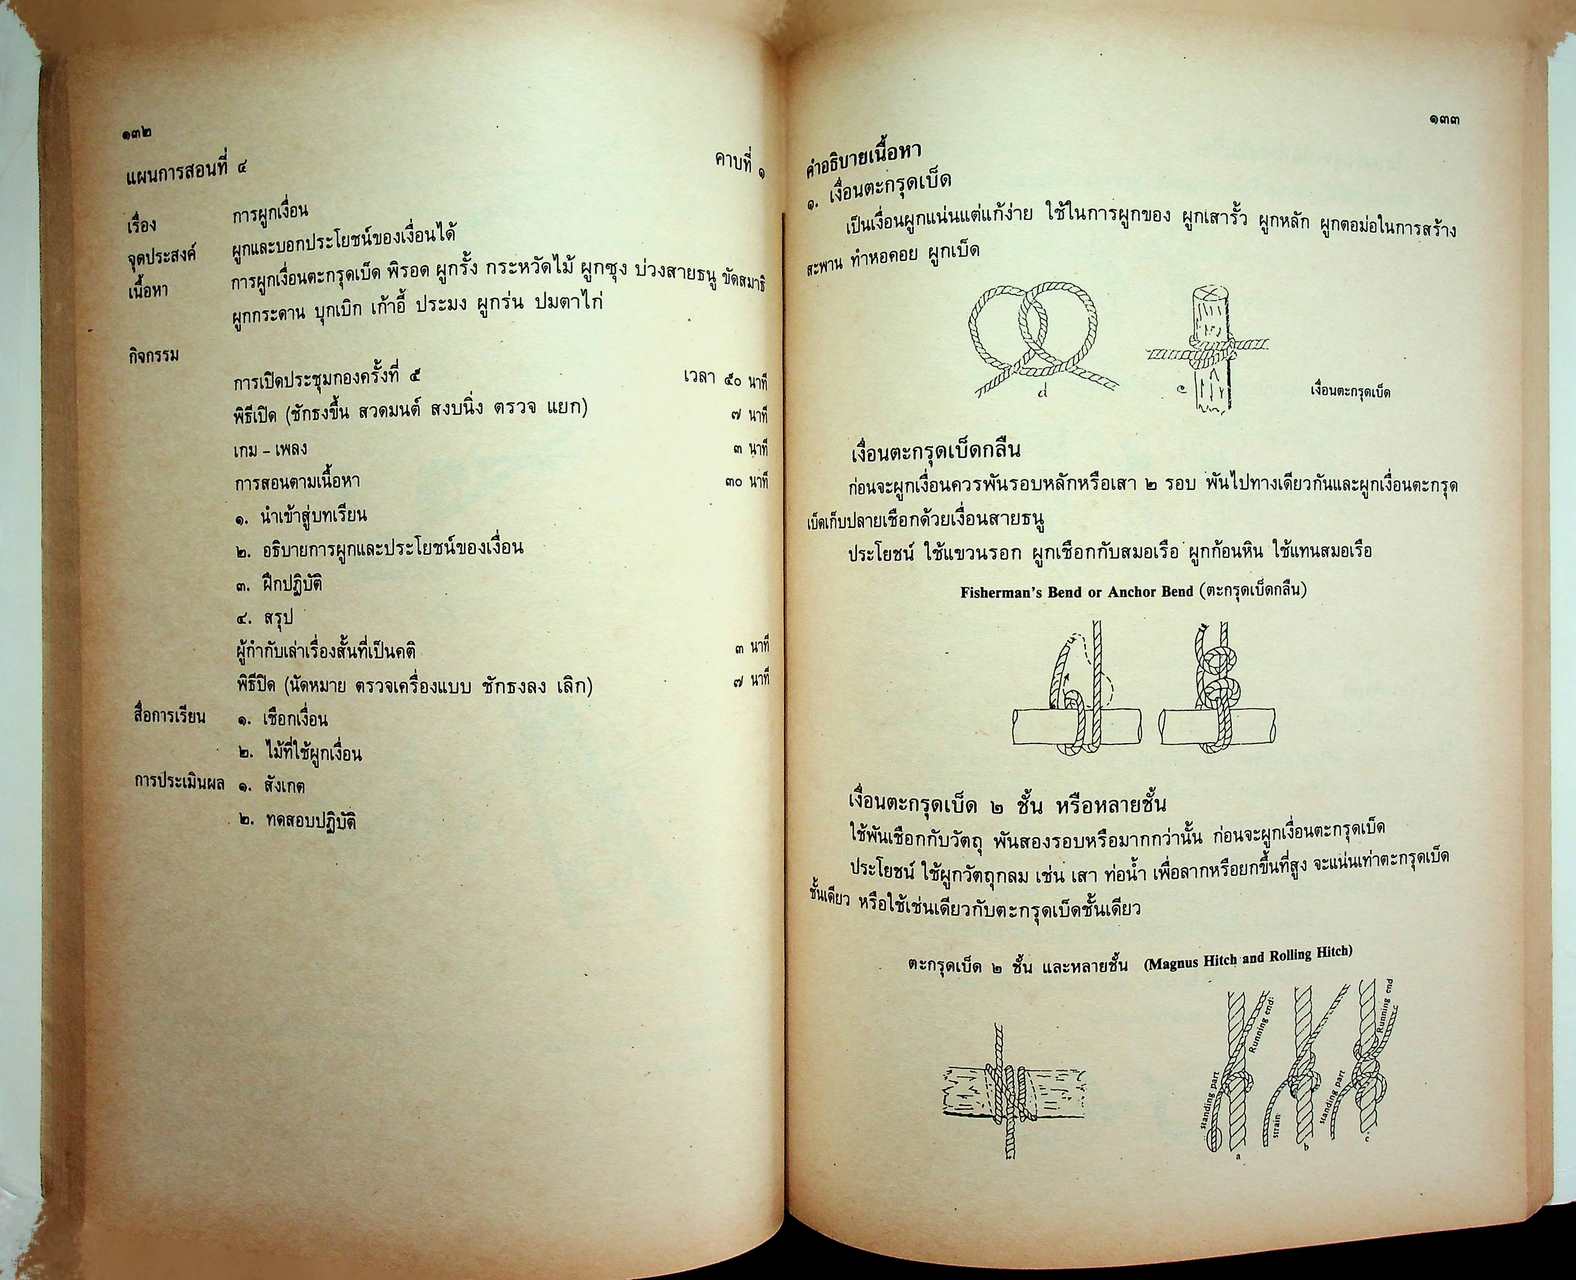 ๑๓๒
แผนการสอนที่ ๔ คาบที่ ๑
เรื่อง การผูกเงื่อน
จุดประสงค์ ผูกและบอกประโยชน์ของเงื่อนได้
เนื้อหา การผูกเงื่อนตะกรุดเบ็ด พิรอด ผูกรั้ง กระหวัดไม้ ผูกซุง บ่วงสายธนู ขัดสมาธิ
ผูกกระดาน บุกเบิก เก้าอี้ ประมง ผูกร่น ปมตาไก่
กิจกรรม
การเปิดประชุมกองครั้งที่ ๕ เวลา ๕๐ นาที
พิธีเปิด (ชักธงขึ้น สวดมนต์ สงบนิ่ง ตรวจ แยก) ๗ นาที
เกม – เพลง ๓ นาที
การสอนตามเนื้อหา ๓๐ นาที
๑. นำเข้าสู่บทเรียน
๒. อธิบายการผูกและประโยชน์ของเงื่อน
๓. ฝึกปฏิบัติ
๔. สรุป
ผู้กำกับเล่าเรื่องสั้นที่เป็นคติ ๓ นาที
พิธีปิด (นัดหมาย ตรวจเครื่องแบบ ชักธงลง เลิก) ๗ นาที
สื่อการเรียน ๑. เชือกเงื่อน
๒. ไม้ที่ใช้ผูกเงื่อน
การประเมินผล ๑. สังเกต
๒. ทดสอบปฏิบัติ
๑๓๓
คำอธิบายเนื้อหา
๑. เงื่อนตะกรุดเบ็ด
เป็นเงื่อนผูกแน่นแต่แก้ง่าย ใช้ในการผูกของ ผูกเสารั้ว ผูกหลัก ผูกตอม่อในการสร้าง
สะพาน ทำหอคอย ผูกเบ็ด
d e เงื่อนตะกรุดเบ็ด
เงื่อนตะกรุดเบ็ดกลืน
ก่อนจะผูกเงื่อนควรพันรอบหลักหรือเสา ๒ รอบ พันไปทางเดียวกันและผูกเงื่อนตะกรุด
เบ็ดเก็บปลายเชือกด้วยเงื่อนสายธนู
ประโยชน์ ใช้แขวนรอก ผูกเชือกกับสมอเรือ ผูกก้อนหิน ใช้แทนสมอเรือ
Fisherman's Bend or Anchor Bend (ตะกรุดเบ็ดกลืน)
เงื่อนตะกรุดเบ็ด ๒ ชั้น หรือหลายชั้น
ใช้พันเชือกกับวัตถุ พันสองรอบหรือมากกว่านั้น ก่อนจะผูกเงื่อนตะกรุดเบ็ด
ประโยชน์ ใช้ผูกวัตถุกลม เช่น เสา ท่อน้ำ เพื่อลากหรือยกขึ้นที่สูง จะแน่นเท่าตะกรุดเบ็ด
ชั้นเดียว หรือใช้เช่นเดียวกับตะกรุดเบ็ดชั้นเดียว
ตะกรุดเบ็ด ๒ ชั้น และหลายชั้น (Magnus Hitch and Rolling Hitch)
Running end:
Running end
standing part
strain
standing part
a b c